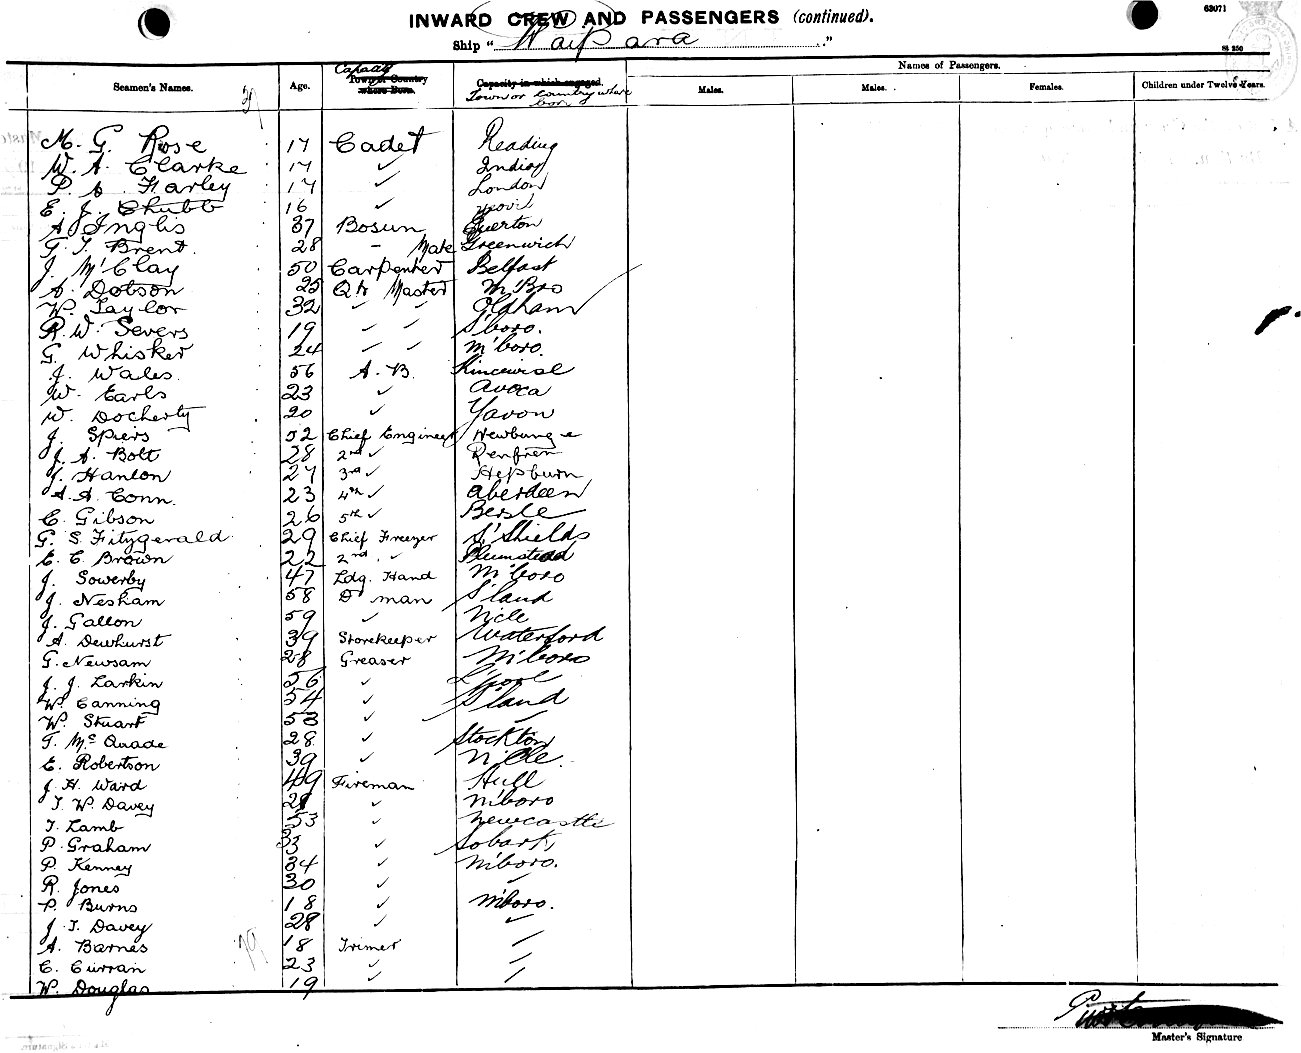 63071
INWARD CREW AND PASSENGERS (continued).
Ship "Waipara"
Names of Passengers.
Seamen's Names. Age. Capacity Town or Country where Born. Capacity in which engaged. Town or Country where born Males. Males. Females. Children under Twelve Years.
M. G. Rose 17 Cadet Reading
W. A. Clarke 17 ✓ India
P. S. Harley 17 ✓ London
E. J. Chubb 16 ✓ Yeovil
A Inglis 37 Bosun Everton
G. T. Brent. 28 - Mate Greenwich
J. McClay 50 Carpenter Belfast
A. Dobson 25 Qtr Master M'Bro
W. Taylor 32 ✓ ✓ Oldham
R. W. Severs 19 ✓ ✓ S'boro.
G. Whisker 24 ✓ ✓ M'boro.
J. Wales. 56 A. B.
W. Earls 23 ✓ Avoca
W. Docherty 20 ✓ Yavon
J. Spiers 52 Chief Engineer
J. A. Bolt 28 2nd ✓ Renfrew
J. Hanlon 27 3rd ✓ Hepburn
A. A. Conn. 23 4th ✓ Aberdeen
C. Gibson 26 5th ✓
G. S. Fitzgerald 29 Chief Freezer S'Shields
E. C. Brown 22 2nd ✓ Plumstead
J. Sowerby 47 Ldg. Hand M'boro
J. Nesham 58 D man S'land
J. Gallon 59 ✓ N'cle
A. Dewhurst 39 Storekeeper Waterford
G. Newsam 28 Greaser M'boro
J. J. Larkin 56 ✓ L'pool
W. Canning 54 ✓ S'land
W. Stuart 53 ✓ ✓
T. McQuade 28 ✓ Stockton
E. Robertson 39 ✓ N'cle.
J. H. Ward 49 Fireman Hull
T. W. Davey 28 ✓ M'boro
T. Lamb 53 ✓ Newcastle
P. Graham 33 ✓ Hobart
P. Kenney 34 ✓ M'boro.
R. Jones 30 ✓ ✓
P. Burns 18 ✓ M'boro.
J. T. Davey 28 ✓ ✓
A. Barnes 18 Trimer ✓
C. Curran 23 ✓ ✓
W. Douglas 19 ✓ ✓
Master's Signature